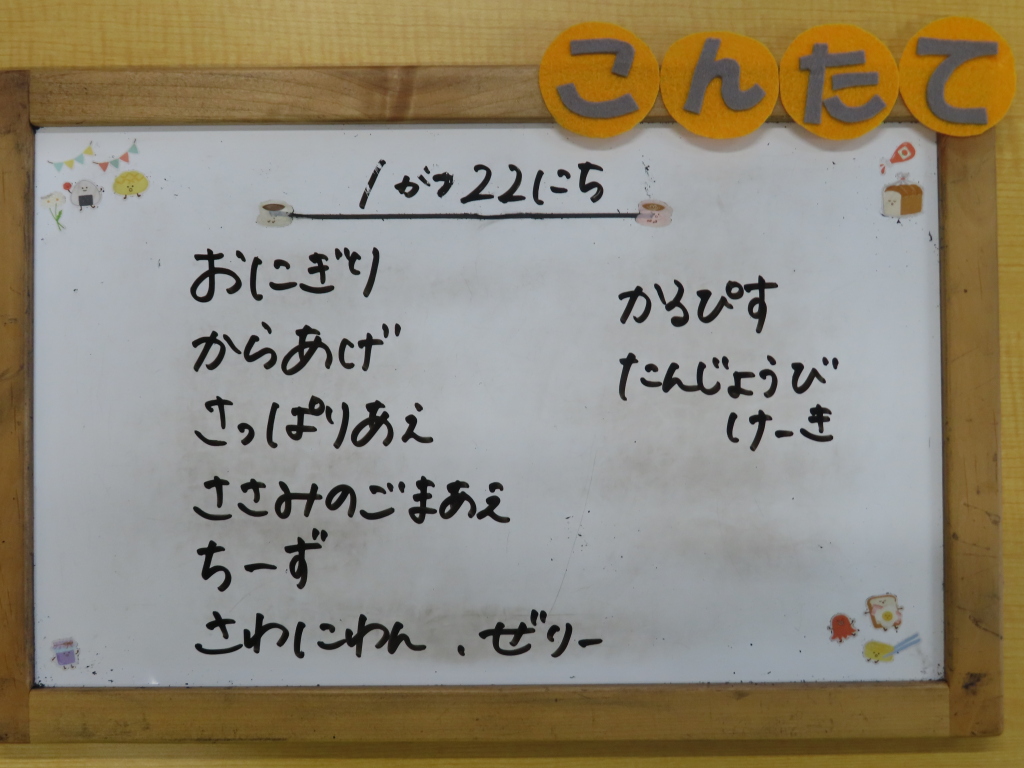 こんたて
1がつ22にち
おにぎり
からあげ
さっぱりあえ
ささみのごまあえ
ちーず
さわにわん、ぜりー
かるぴす
たんじょうび
けーき